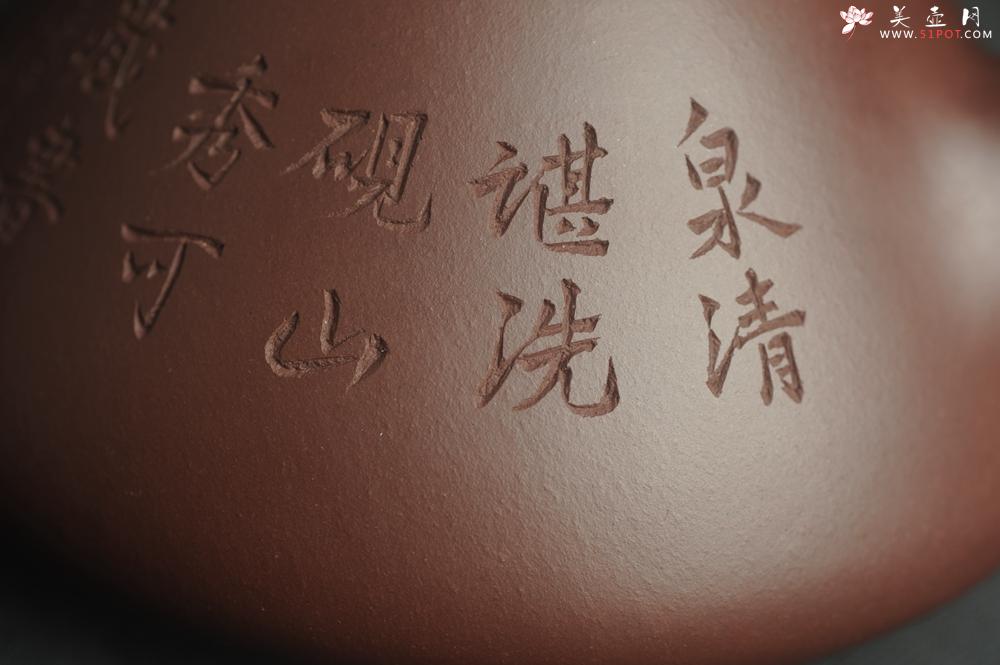 泉清
谌洗
砚山
秀可
美壶网
WWW.51POT.COM